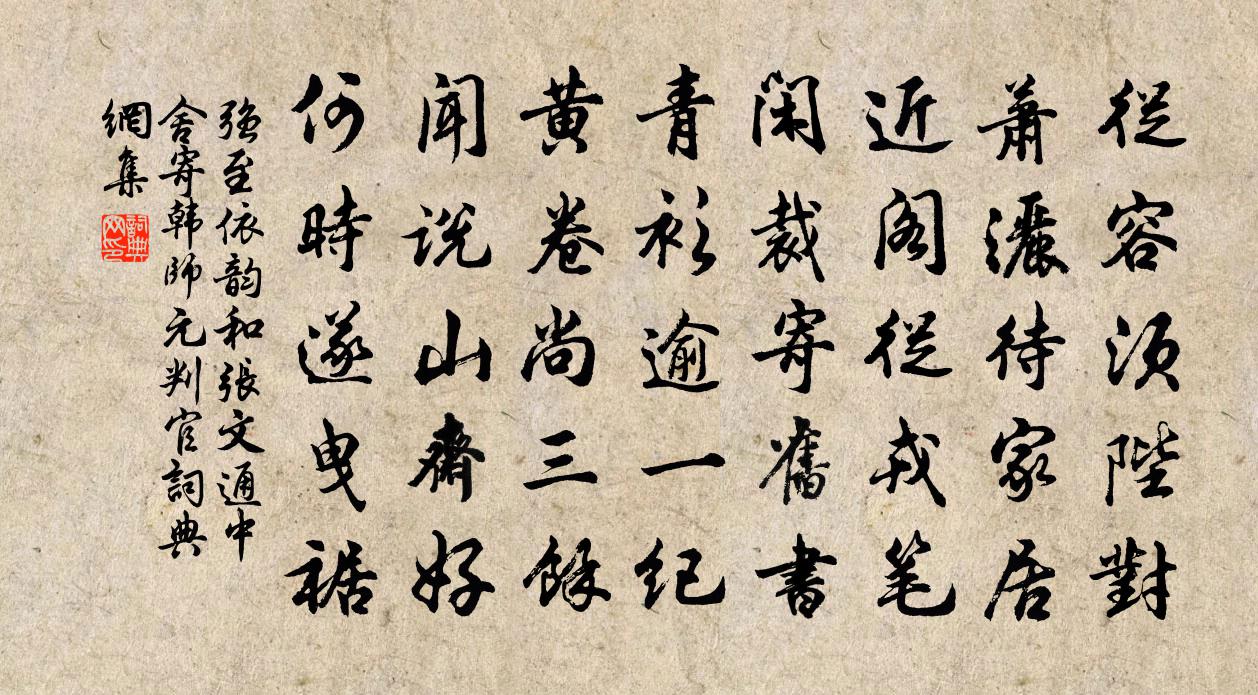 從容須陛對
蕭灑待家居
近阁從戎笔
閑裁寄舊書
青衫逾一纪
黄卷尚三餘
闻説山齋好
何時遂曳裾
强至依韵和張文通中
舍寄韩師元判官詞典
網集
詞典网印